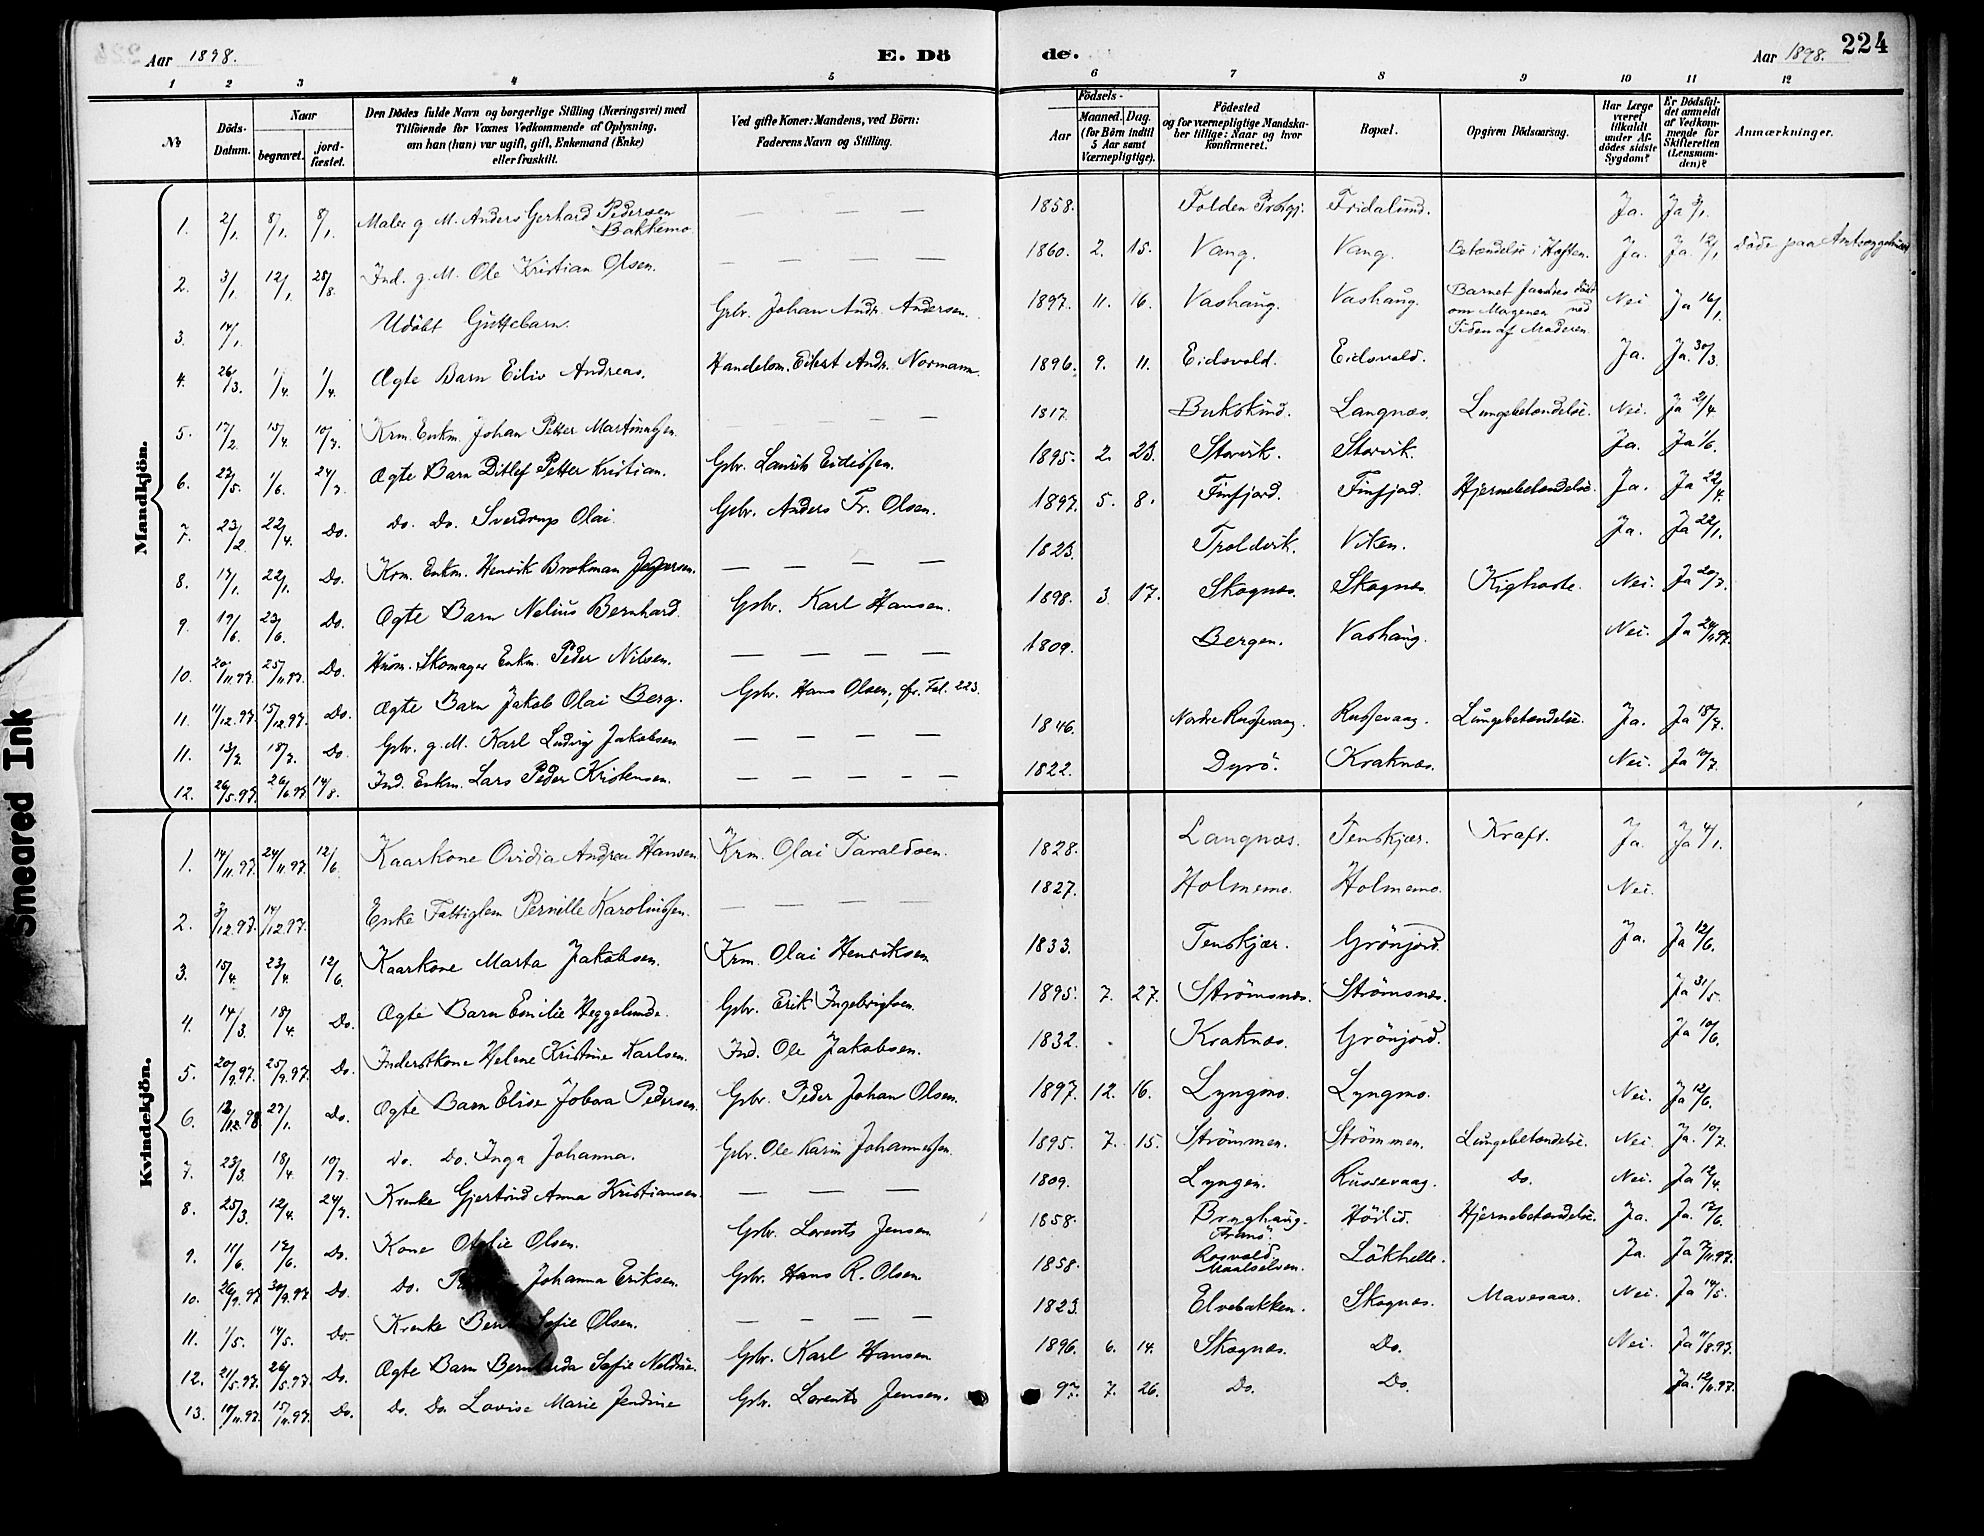 Aar 1898.
E. Dö
de.
Aar 1898.
224
1 2 3 4 5 6 7 8 9 10 11 12
No
Döds-Datum.
Naar
begravet.
jordfæstet.
Den Dödes fulde Navn og borgerlige Stilling (Næringsvei) med
Tilföiende for Voxnes Vedkommende af Oplysning,
om han (hun) var ugift, gift, Enkemand (Enke)
eller fraskilt.
Ved gifte Koner: Mandens, ved Börn:
Faderens Navn og Stilling.
Födsels-
Aar
Maaned. Dag.
(for Börn indtil
5 Aar samt
Værnepligtige).
Födested
og for værnepligtige Mandska-
ber tillige: Naar og hvor
konfirmeret.
Bopæl.
Opgiven Dödsaarsag.
Har Læge
været
tilkaldt
under Af-
dödes sidste
Sygdom?
Er Dödsfal-
det anmeldt
af Vedkom-
mende for
Skifteretten
(Lensman-
den)?
Anmærkninger.
Mandkjön.
1. 2/1 8/1 8/1 Maler g. M. Anders Gerhard Pedersen Bakkemo — — — 1858. Folden Fridalund. Ja. Ja 3/1.
2. 3/1 12/1 28/8 Ind. g. M. Ole Kristian Olsen. — — — 1860. 2. 15. Vang. Vang. Betændelse i Hoften. Ja. Ja 12/1 döde paa
3. 14/1 Udöbt Guttebarn. Gbr. Johan Andr. Andersen. 1897. 11. 16. Vashaug. Vashaug. Barnet fandtes död om Morgenen ved Siden af Moderen. Nei Ja 16/1.
4. 26/3. 1/4. 1/4. Ægte Barn Eiliv Andreas. Handelsm. Eilert Andr. Normann. 1896. 9. 11. Eidsvold. Eidsvold. Ja. Ja. 30/3.
5. 17/2. 15/4. 10/7. Krm. Enkm. Johan Petter Martinussen. — — 1817. Bukskind. Langnæs. Lungebetændelse. Nei. Ja 21/4.
6. 22/5. 1/6. 24/7. Ægte Barn Ditlef Petter Kristian. Gbr. Laurits Eidissen. 1895. 2. 23. Storvik. Storvik. Ja. Ja 1/6.
7. 23/2. 22/4. Do. Do. Do. Sverdrup Olai. Gbr. Anders Fr. Olsen. 1897. 5. 8. Finfjord. Finfjord. Hjernebetændelse. Ja. Ja 22/4.
8. 17/1. 22/1. Do. Krm. Enkm. Henrik Brokman Jespersen. — — — — 1823. Troldvik. Viken. Ja. Ja 22/1.
9. 19/6. 23/6. Do. Ægte Barn Nelius Bernhard. Gbr. Karl Hansen. 1898. 3. 17. Skognæs. Skognæs. Kighoste. Nei. Ja 20/7.
10. 20/11.97. 25/11.97. Do. Husm. Skomager Enkm. Peder Nilsen. — — — — 1809. Bergen. Vashaug. Nei. Ja 24/11.97.
11. 11/12.97. 15/12.97. Do. Ægte Barn Jakob Olai Berg. Gbr. Hans Olsen, cfr. Fol. 223.
11. 13/7. 18/7. Do. Gbr. g. M. Karl Ludvig Jakobsen — — — — 1846. Nordre Russevaag. Russevaag. Lungebetændelse. Ja. Ja 18/7.
12. 26/5.97. 26/6.97. 14/8. Ind. Enkm. Lars Peder Kristensen. — — — — — 1822. Dyrö. Kraknæs. Nei. Ja 10/7.
Kvindekjön.
1. 14/11.97. 24/11.97. 12/6. Kaarkone Ovidia Andrea Hansen. Krm. Olai Taraldsen. 1828. Langnæs. Tenskjær. Kræft. Ja. Ja 4/1.
2. 3/12.97. 14/12.97. Enke Fattiglem Pernille Karolinssen. — — — — 1827. Holmemo. Holmemo. Nei.
3. 15/4. 23/4. 12/6. Kaarkone Marta Jakobsen. Krm. Olai Henriksen 1833. Tenskjær. Grönjord. Ja. Ja 12/6.
4. 14/3. 18/4. Do. Ægte Barn Emilie Heggelunde. Gbr. Erik Ingebrigtsen. 1895. 7. 27. Strömsnæs. Strömsnæs. Ja 31/5.
5. 20/9.97. 25/9.97. Do. Inderstkone Helene Kristine Karlsen. Ind. Ole Jakobsen. 1832. Kraknæs. Grönjord. Ja 10/6.
6. 29/1. Do. Ægte Barn Elise Jobara Pedersen Gbr. Peder Johan Olsen. 1897. 12. 16. Lyngmo. Lyngmo. Nei. Ja 12/6.
7. 23/3. 18/4. 10/7. Do. Do. Inga Johanna. Gbr. Ole Karin Johannessen. 1895. 7. 15. Strömmen. Strömmen. Lungebetændelse. Nei. Ja. 10/7.
8. 25/3. 12/4. 24/7. Krenke Gjertrud Anna Kristiansen. — — — 1809. Lyngen. Russevaag. Do. Nei. Ja 12/4.
9. 11/6. 12/6. Do. Kone Otelie Olsen. Gbr. Lorents Jensen. 1858. Bryghaug. Tranö. Höilid. Hjernebetændelse. Ja. Ja. 12/6.
10. 26/9.97. 30/9.97. Do. Do. Johanna Eriksen. Gbr. Hans R. Olsen. 1858. Rosvold. Maalselven. Lökhelle. Ja. Ja
11. 1/5. 14/5. Do. Krenke Sofie Olsen. — — — — 1823. Elvebakken. Skognæs. Mavesaar. Nei. Ja 14/5.
12. 21/5.97. 26/5.97. Do. Ægte Barn Sofie Gbr. Karl Hansen. 1896. 6. 14. Skognæs. Do. Nei. Ja 11/8.97.
13. 10/11.97. 15/11.97. Do. Do. Do. Lovise Marie Jendine Gbr. Lorents Jensen. 97. 7. 26. Do. Do. Ja. 12/11.97.
Smeared Ink